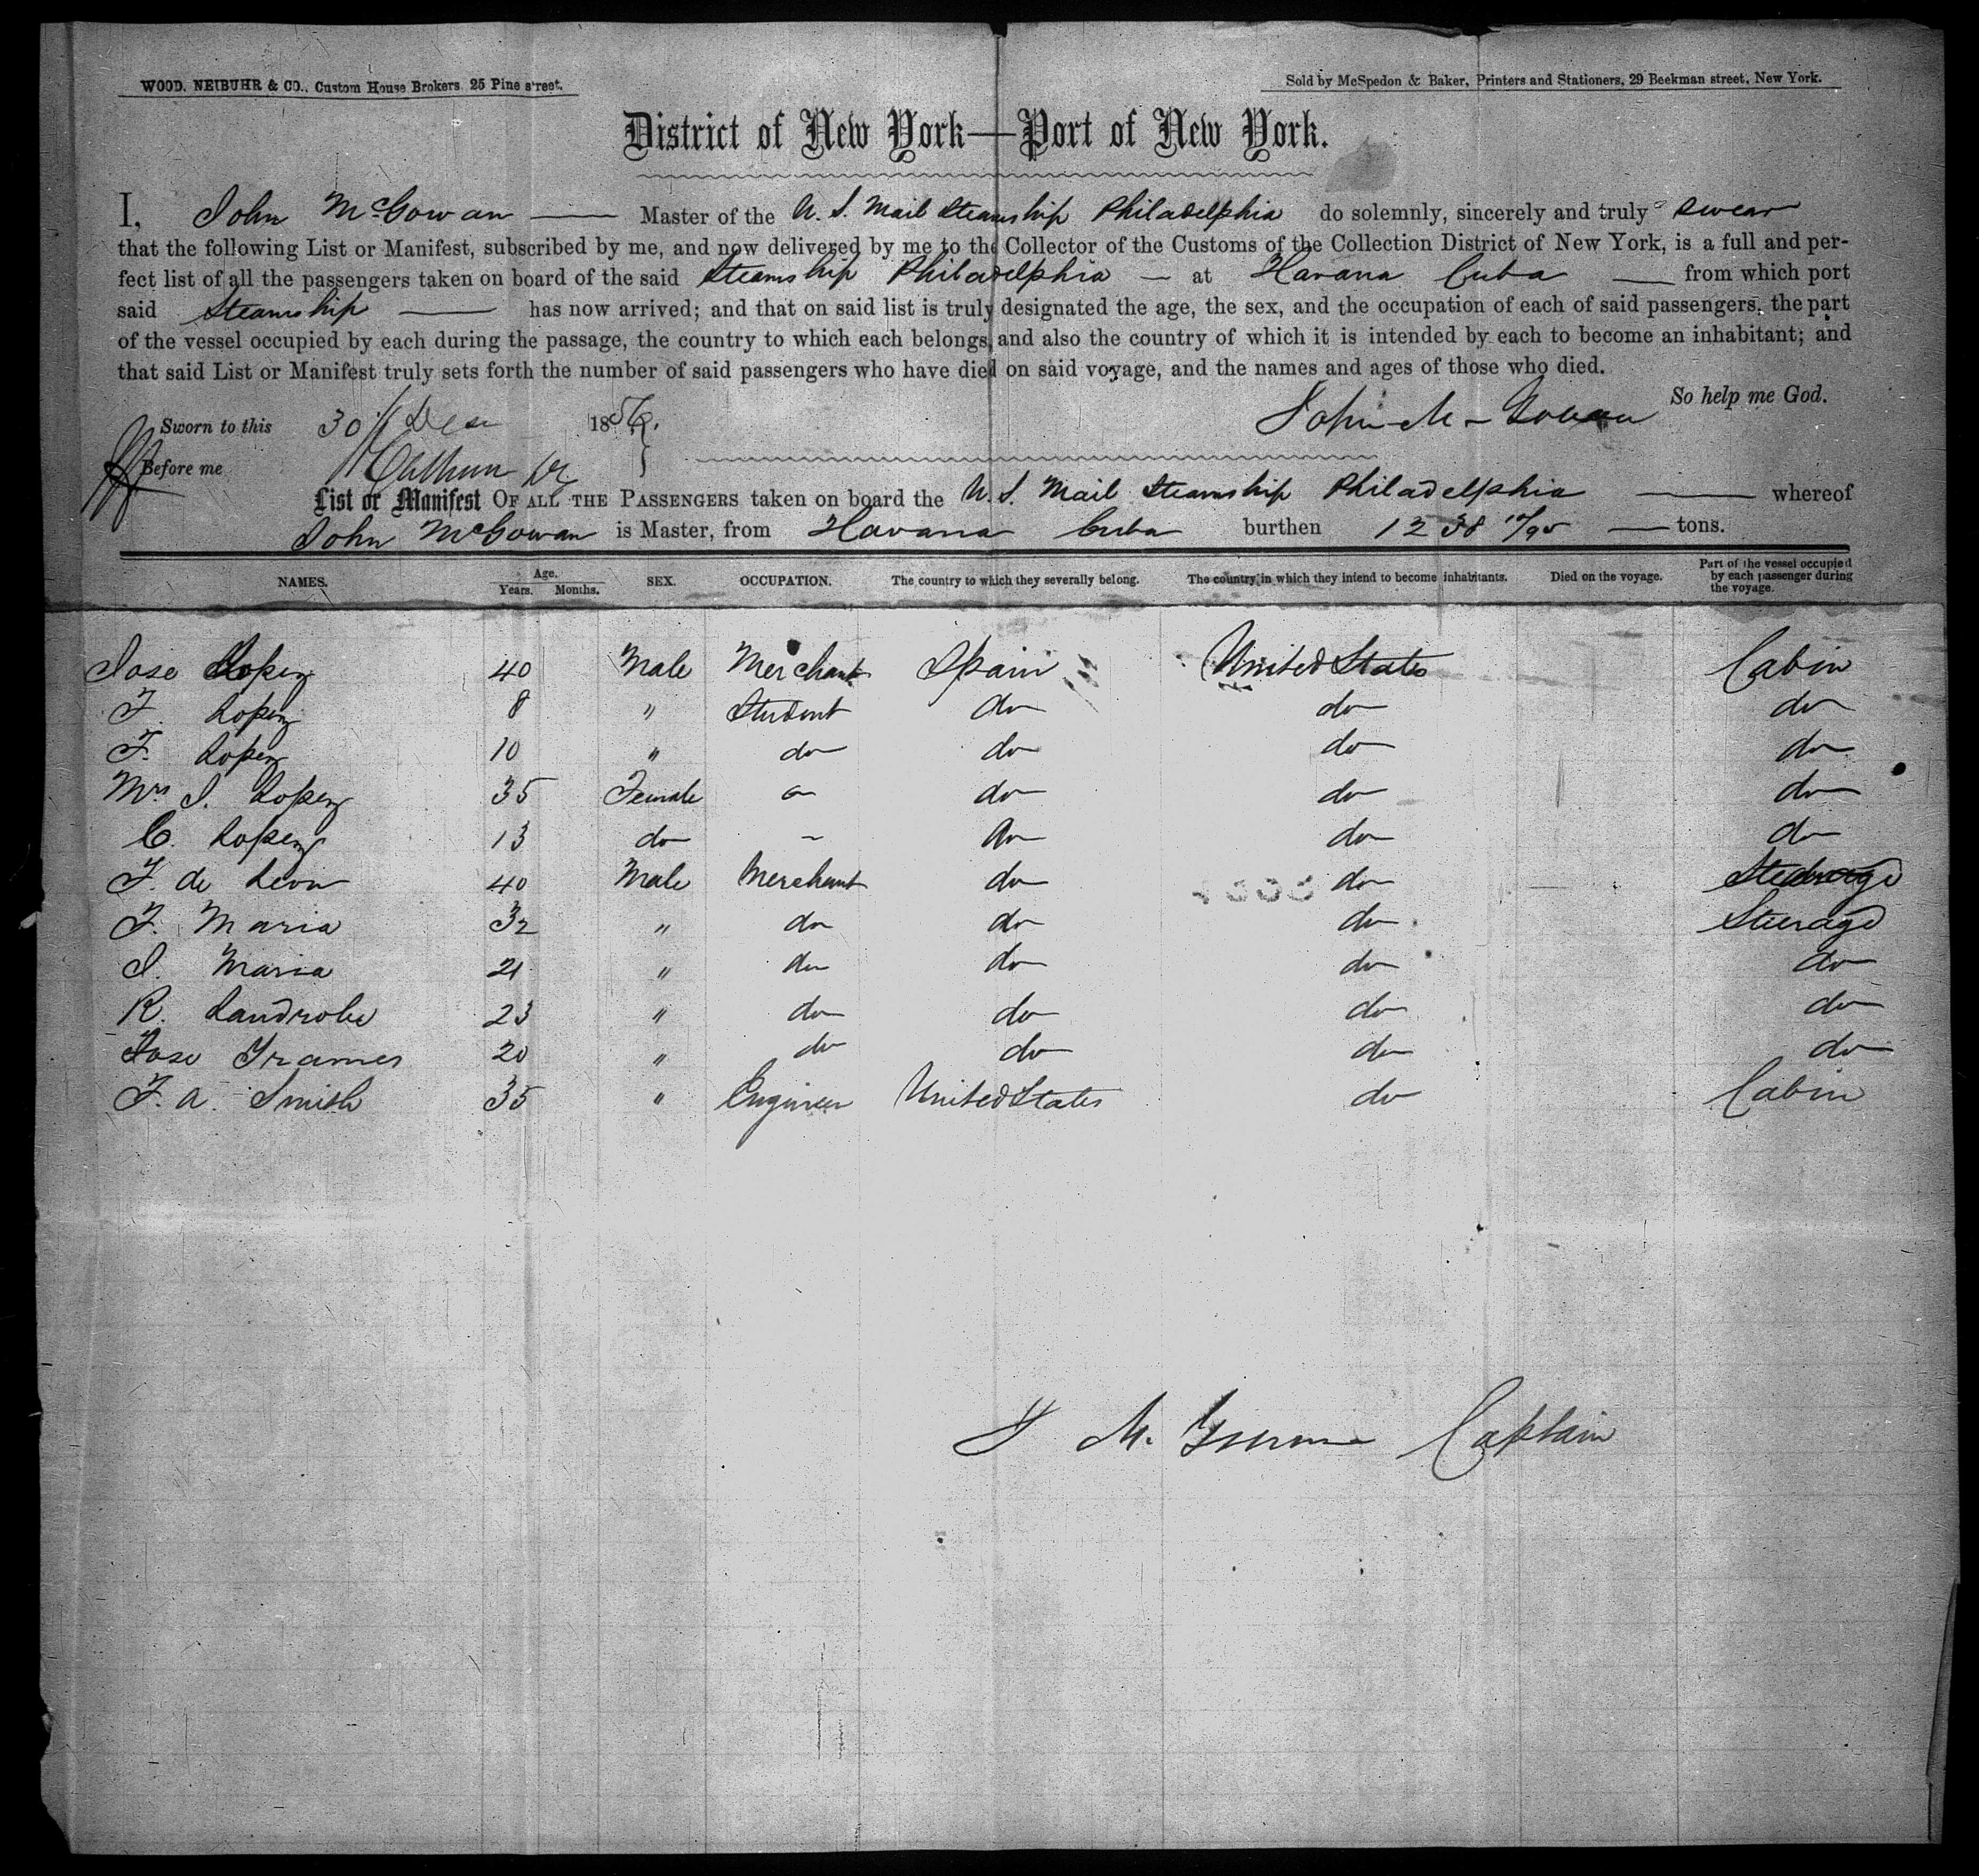 WOOD, NEIBUHR & CO., Custom House Brokers, 25 Pine street.
Sold by McSpedon & Baker, Printers and Stationers, 29 Beekman street, New York.
District of New York—Port of New York.
I, John McGowan — Master of the U. S. Mail Steamship Philadelphia do solemnly, sincerely and truly swear
that the following List or Manifest, subscribed by me, and now delivered by me to the Collector of the Customs of the Collection District of New York, is a full and per-
fect list of all the passengers taken on board of the said Steamship Philadelphia — at Havana Cuba — from which port
said Steamship — has now arrived; and that on said list is truly designated the age, the sex, and the occupation of each of said passengers, the part
of the vessel occupied by each during the passage, the country to which each belongs, and also the country of which it is intended by each to become an inhabitant; and
that said List or Manifest truly sets forth the number of said passengers who have died on said voyage, and the names and ages of those who died.
So help me God.
Sworn to this 30th Dec 1856.
John McGowan
Before me
List or Manifest OF ALL THE PASSENGERS taken on board the U. S. Mail Steamship Philadelphia — whereof
John McGowan is Master, from Havana Cuba burthen 1238 — tons.
NAMES. Age. Years. Months. SEX. OCCUPATION. The country to which they severally belong. The country in which they intend to become inhabitants. Died on the voyage. Part of the vessel occupied by each passenger during the voyage.
Jose Lopez 40 Male Merchant Spain United States Cabin
F. Lopez 8 " Student do do do
F. Lopez 10 " do do do do
Mrs J. Lopez 35 Female do do do
C. Lopez 13 do - do do do
F. de Leon 40 Male Merchant do do Steerage
F. Maria 32 " do do do Steerage
J. Maria 21 " do do do do
R. Landrobe 23 " do do do do
Jose Frames 20 " do do do do
F. A. Smith 35 " Engineer United States do Cabin
J McGowan Captain